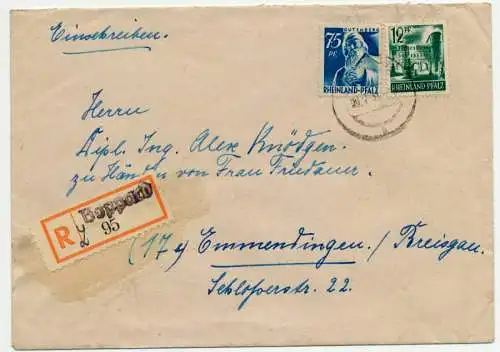 Einschreiben.
75 PF.
GUTENBERG
RHEINLAND-PFALZ
12 PF
RHEINLAND-PFALZ
Herrn
Dipl. Ing. Alex Knödgen.
zu Händen von Frau Friedauer.
R
Boppard
95
(17 Emmendingen / Breisgau.
Schloßerstr. 22.